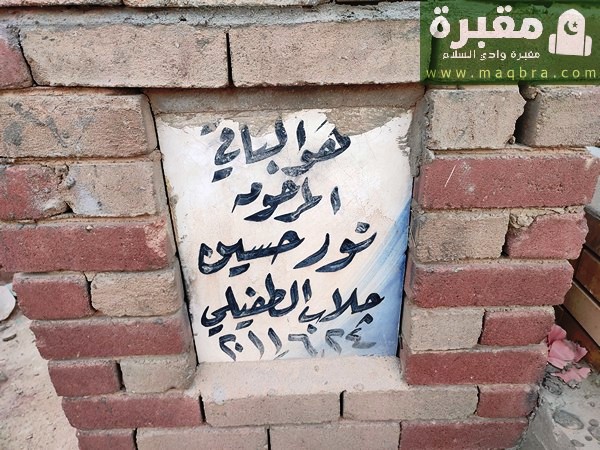 مقبرة
مقبرة وادي السلام
www.maqbra.com
هو الباقي
المرحومه
نور حسين
جلاب الطفيلي
٢٠١١/٦/٢٤